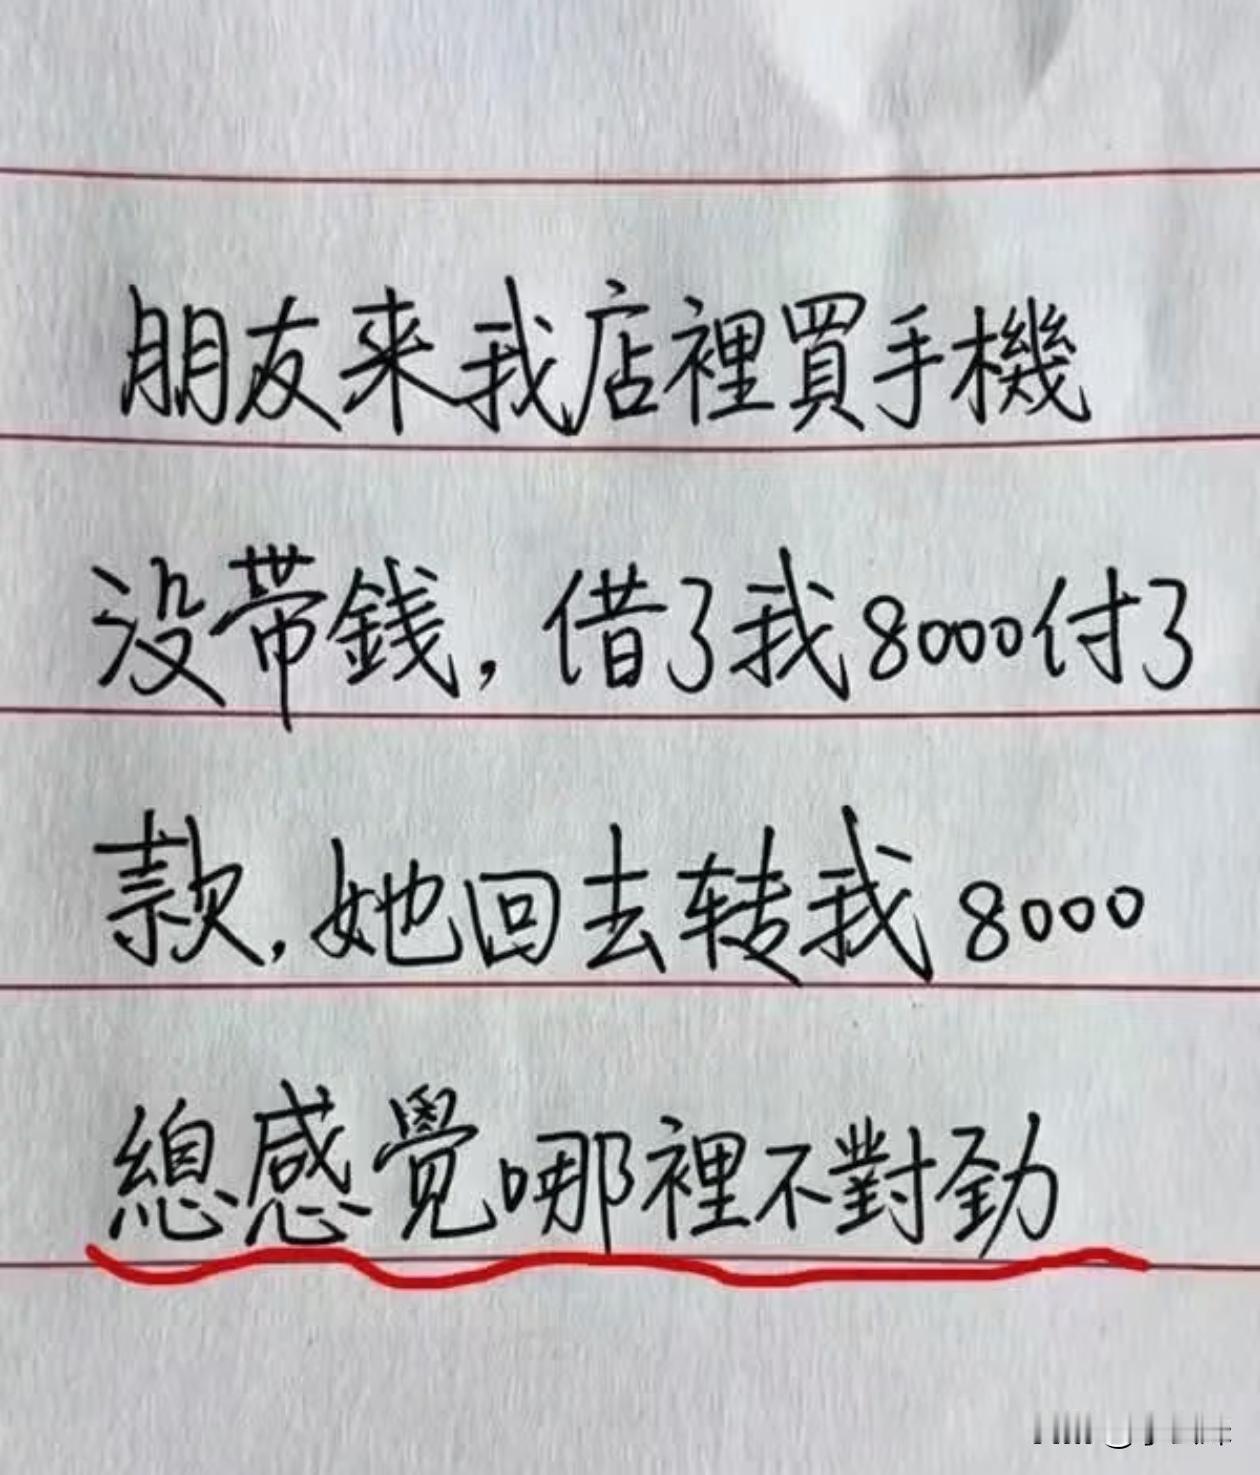 朋友來我店裡買手機
没带錢，借了我8000付了
款，她回去转我8000
總感覺哪裡不對劲